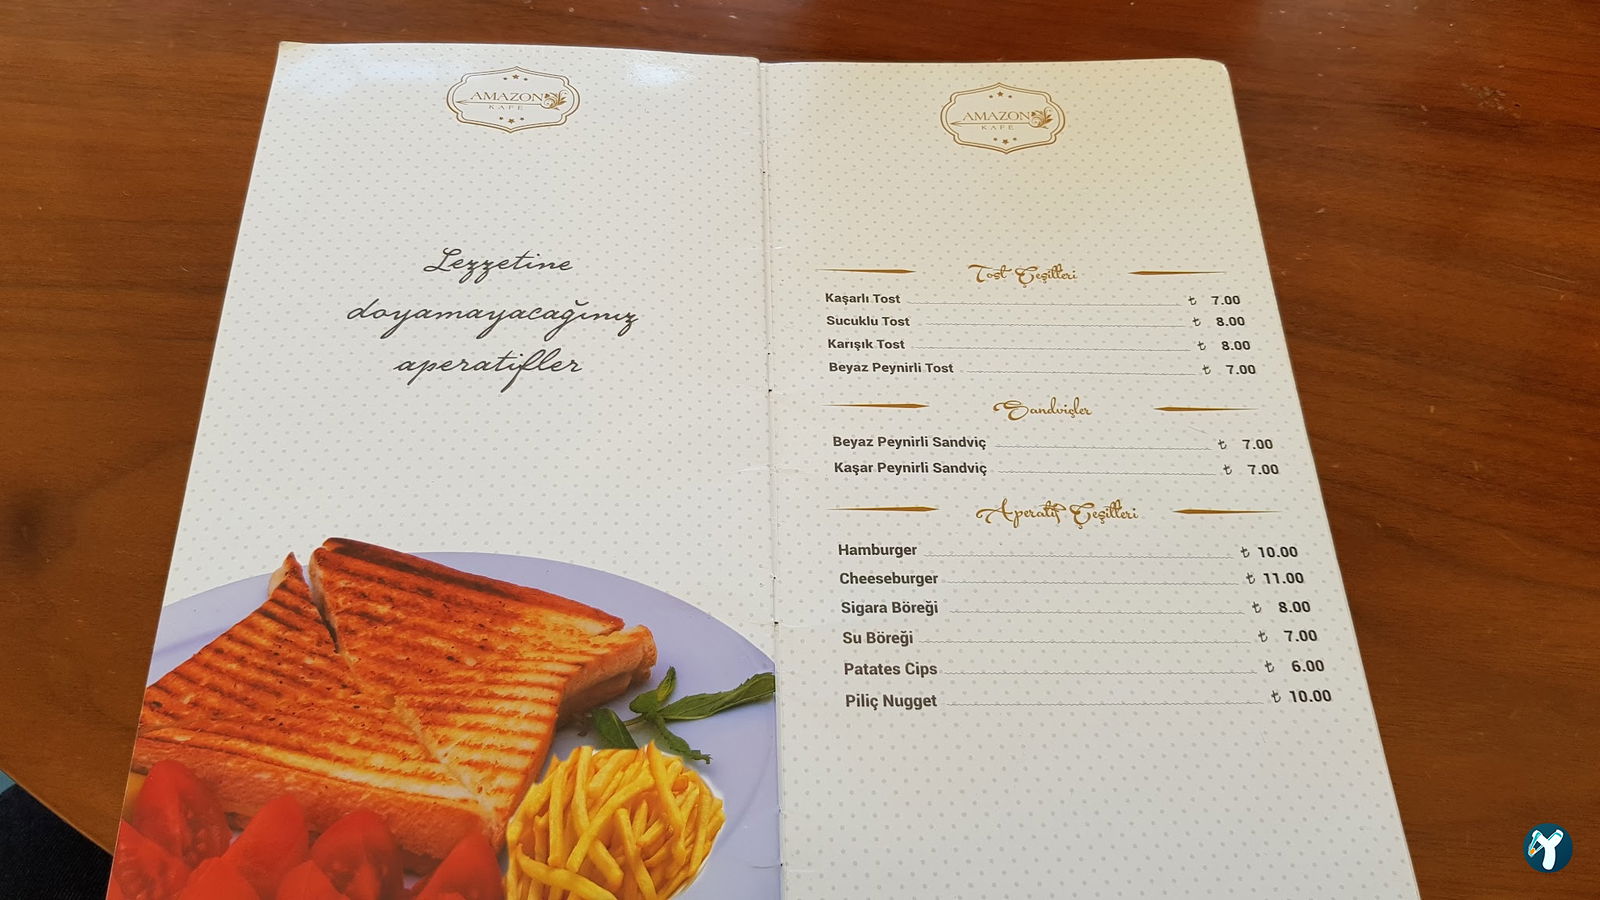 AMAZON
KAFE
Lezzetine
doyamayacağınız
aperatifler
AMAZON
KAFE
Tost Çeşitleri
Kaşarlı Tost ₺ 7.00
Sucuklu Tost ₺ 8.00
Karışık Tost ₺ 8.00
Beyaz Peynirli Tost ₺ 7.00
Sandviçler
Beyaz Peynirli Sandviç ₺ 7.00
Kaşar Peynirli Sandviç ₺ 7.00
Aperatif Çeşitleri
Hamburger ₺ 10.00
Cheeseburger ₺ 11.00
Sigara Böreği ₺ 8.00
Su Böreği ₺ 7.00
Patates Cips ₺ 6.00
Piliç Nugget ₺ 10.00